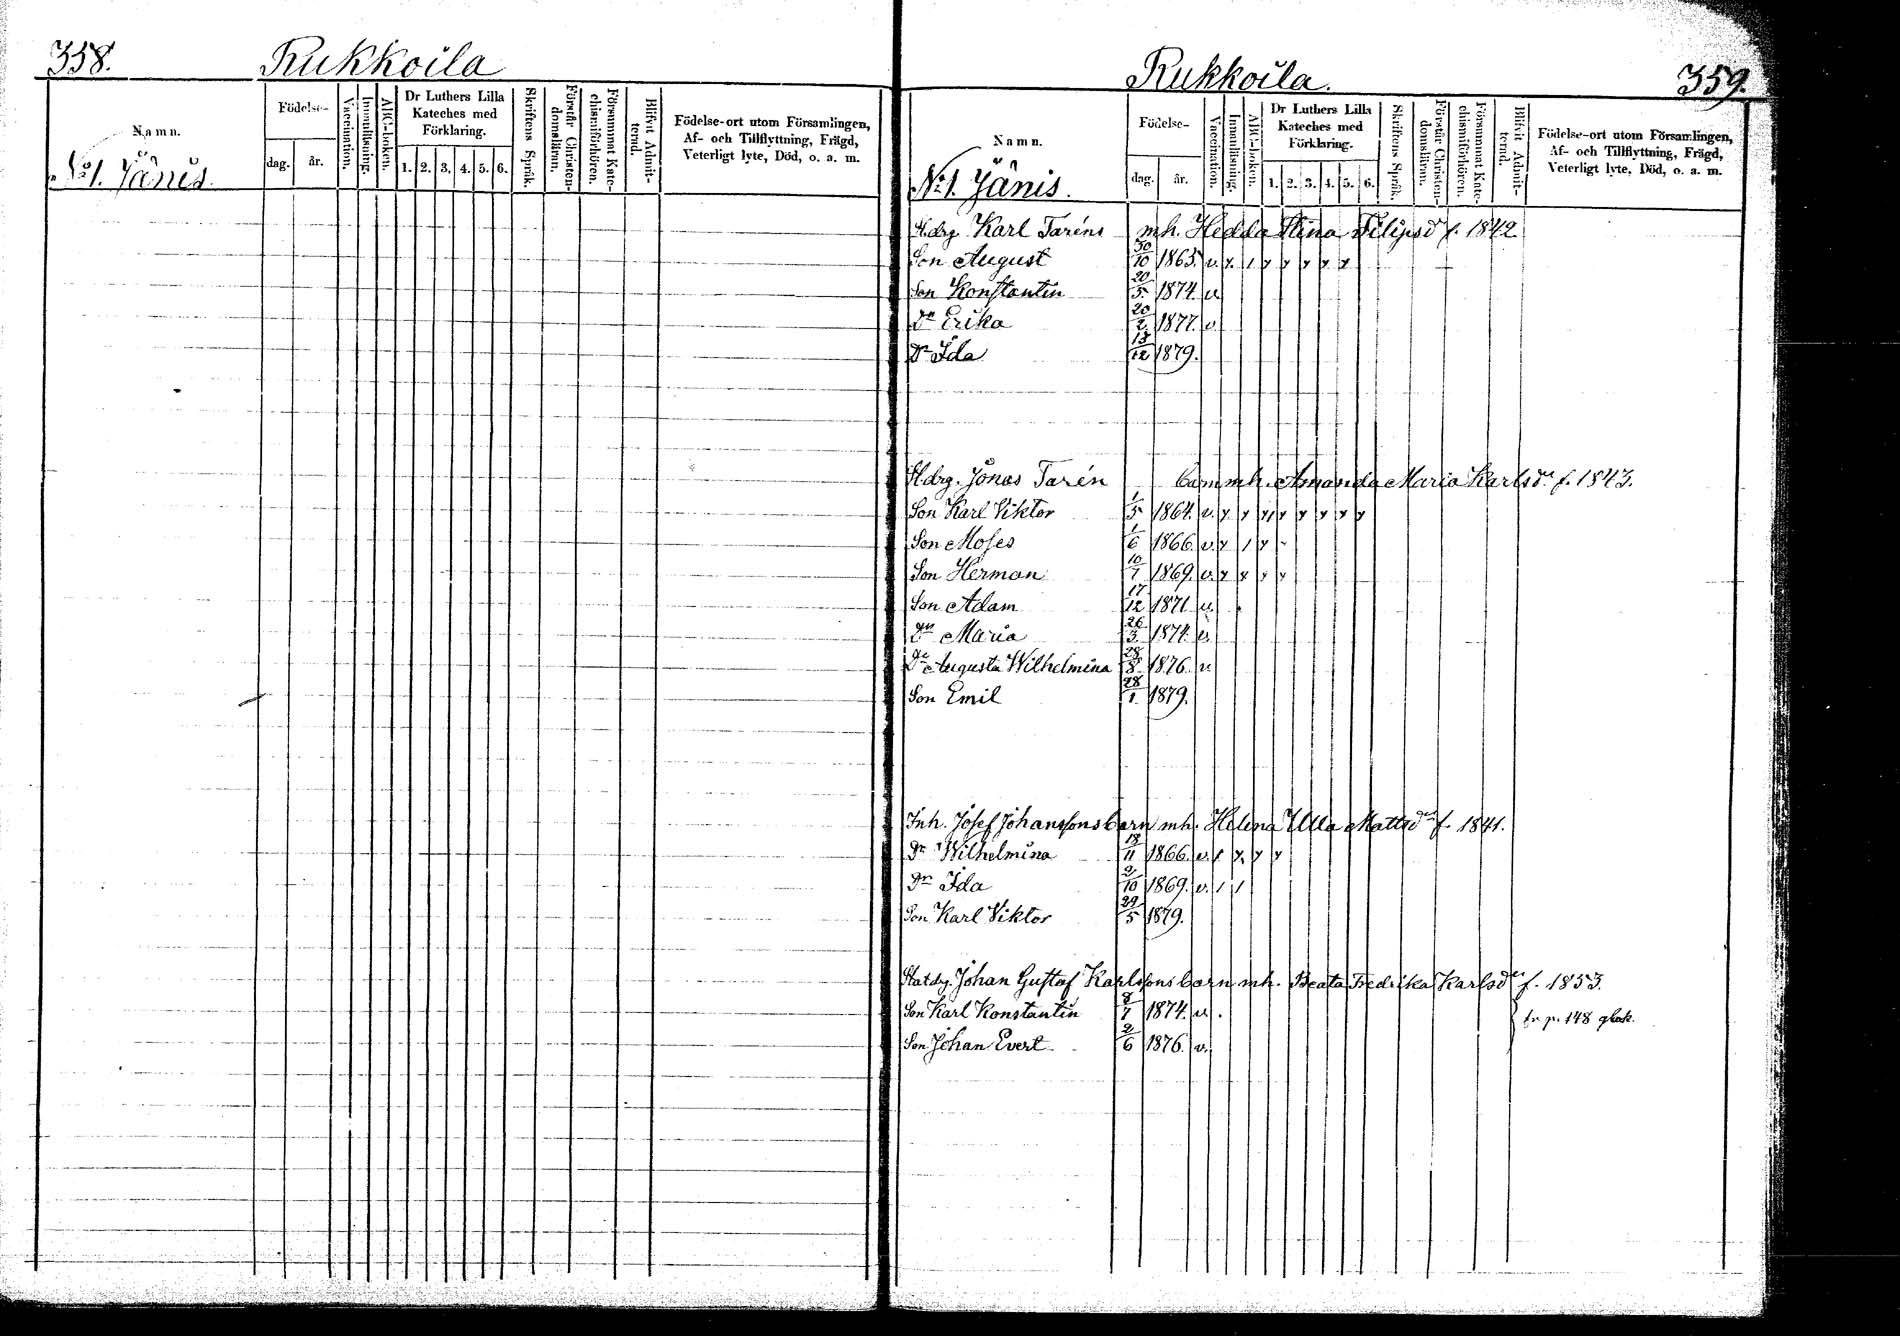 358. Rukkoila
Namn.
Födelse-
dag. år.
Vaccination.
Innanläsning.
ABC-boken.
Dr Luthers Lilla Kateches med Förklaring.
1. 2. 3. 4. 5. 6.
Skriftens Språk.
Förstår Christendomsläran.
Försummat Katechismiförhören.
Blifvit Admitterad.
Födelse-ort utom Församlingen,
Af- och Tillflyttning, Frägd,
Veterligt lyte, Död, o. a. m.
No 1. Jänis.
Rukkoila. 359.
Namn.
Födelse-
dag. år.
Vaccination.
Innanläsning.
ABC-boken.
Dr Luthers Lilla Kateches med Förklaring.
1. 2. 3. 4. 5. 6.
Skriftens Språk.
Förstår Christendomsläran.
Försummat Katechismiförhören.
Blifvit Admitterad.
Födelse-ort utom Församlingen,
Af- och Tillflyttning, Frägd,
Veterligt lyte, Död, o. a. m.
No 1. Jänis.
St.drg Karl Taréns mh. Hedda Stina Filipsdr f. 1842
Son August 30/10 1863. v. x 1 y y y y y
Son Konstantin 20/5 1874. v.
Dr Erika 20/2 1877. v
Dr Ida 13/12 1879.
St.drg. Jonas Tarén barn mh. Amanda Maria Karlsdr f. 1843.
Son Karl Viktor 1/5 1864. v. y y y y y y y y
Son Moses 1/6 1866. v. y 1 y -
Son Herman 10/7 1869. v. y x y y
Son Adam 17/12 1871. v.
Dr Maria 26/3 1874. v.
Dr Augusta Wilhelmina 28/8 1876. v
Son Emil 28/1 1879.
Inh. Josef Johanssons barn mh. Helena Ulla Mattsdr f. 1841.
Dr Wilhelmina 18/11 1866. v. 1 y y y
Dr Ida 2/10 1869. v. 1 1
Son Karl Viktor 29/5 1879.
Statdrg. Johan Gustaf Karlssons barn mh. Beata Fredrika Karlsdr f. 1853.
Son Karl Konstantin 8/7 1874. v.
Son Johan Evert 2/6 1876. v.
p. 148